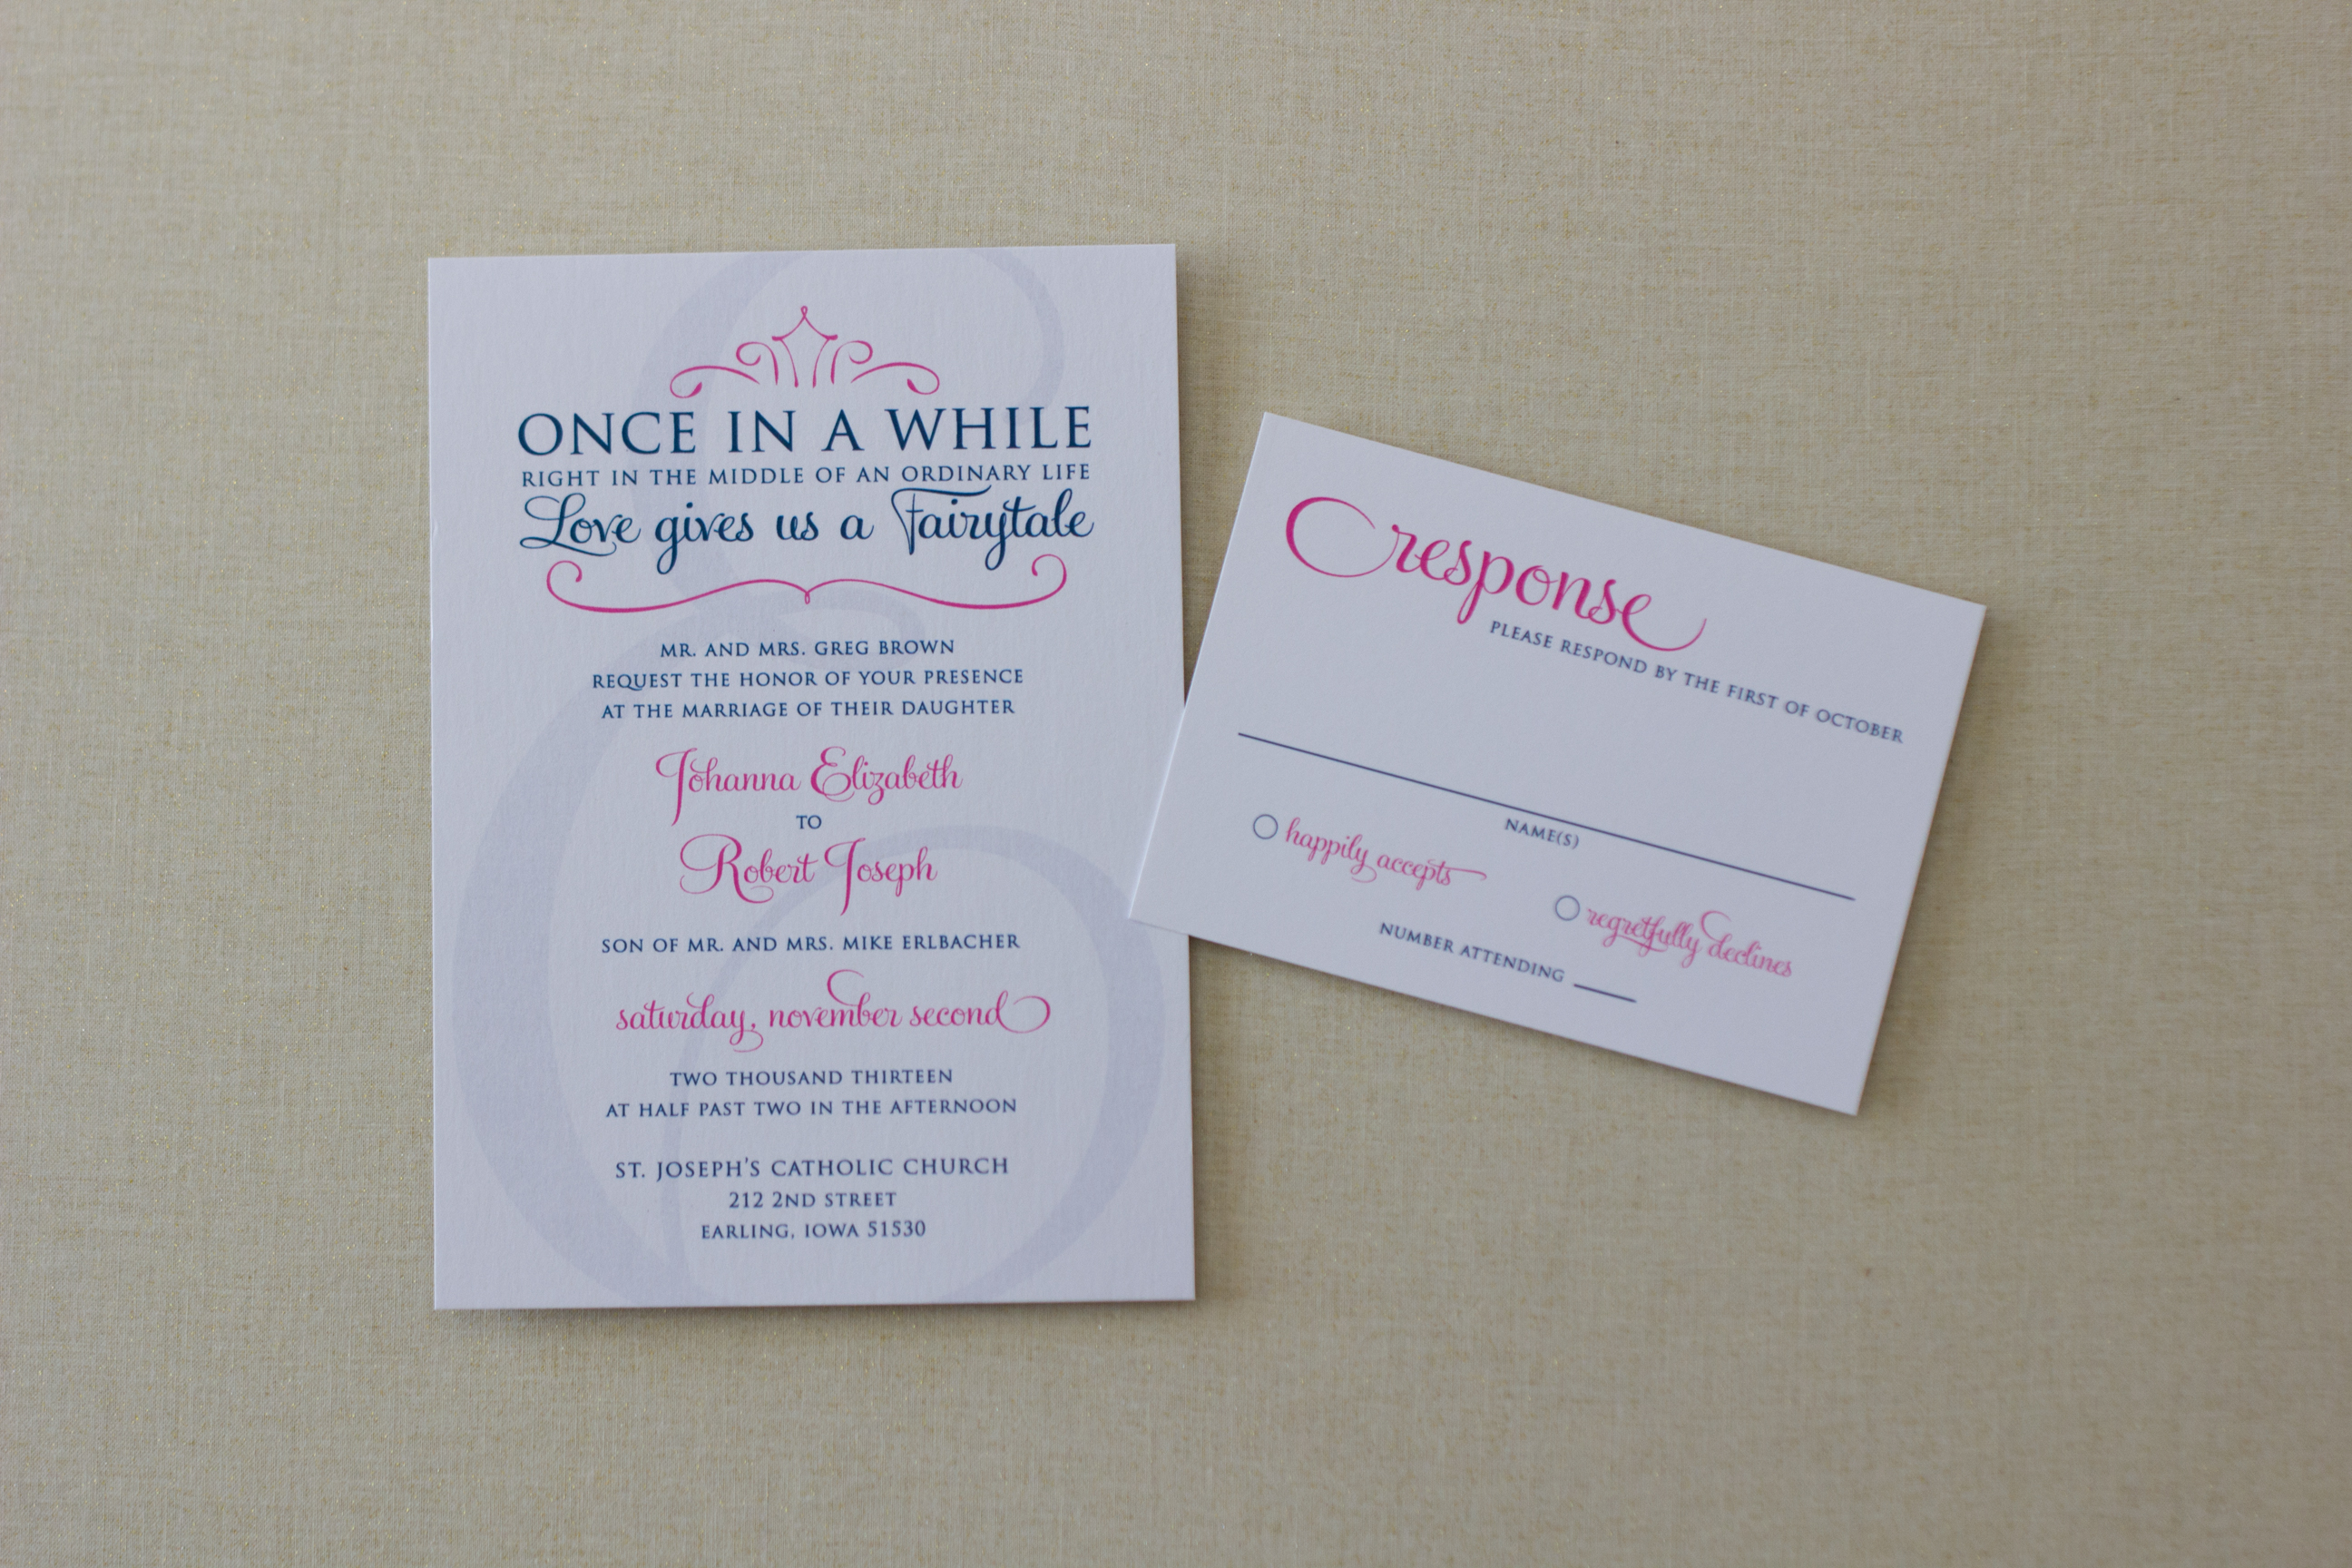 ONCE IN A WHILE
RIGHT IN THE MIDDLE OF AN ORDINARY LIFE
Love gives us a Fairytale
MR. AND MRS. GREG BROWN
REQUEST THE HONOR OF YOUR PRESENCE
AT THE MARRIAGE OF THEIR DAUGHTER
Johanna Elizabeth
TO
Robert Joseph
SON OF MR. AND MRS. MIKE ERLBACHER
saturday, november second
TWO THOUSAND THIRTEEN
AT HALF PAST TWO IN THE AFTERNOON
ST. JOSEPH'S CATHOLIC CHURCH
212 2ND STREET
EARLING, IOWA 51530
response
PLEASE RESPOND BY THE FIRST OF OCTOBER
NAME(S)
happily accepts
regretfully declines
NUMBER ATTENDING